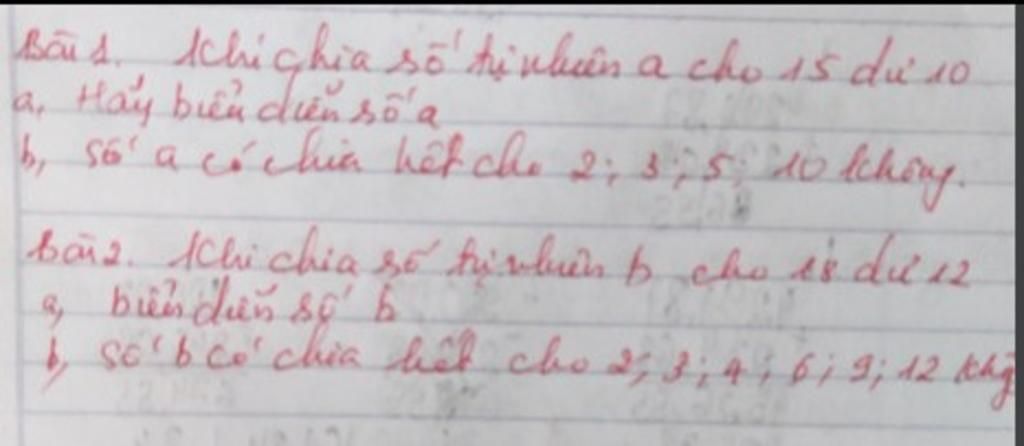 Bài 1. Khi chia số tự nhiên a cho 15 dư 10
a, Hãy biểu diễn số a
b, Số a có chia hết cho 2; 3; 5; 10 không.
Bài 2. Khi chia số tự nhiên b cho 18 dư 12
a, biểu diễn số b
b, số b có chia hết cho 2; 3; 4; 6; 9; 12 khg